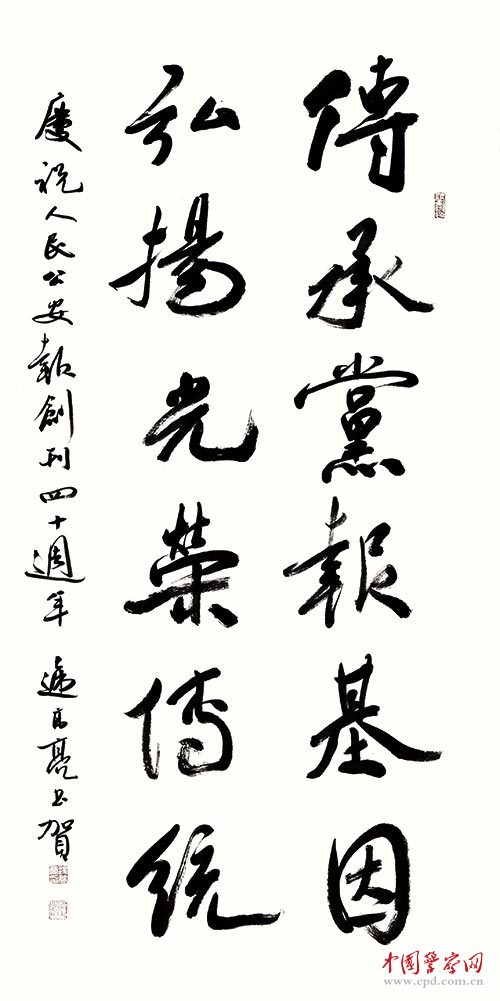 傳承黨報基因
弘揚光榮傳统
慶祝人民公安報創刊四十週年 逯高亮书賀
中国警察网
www.cpd.com.cn